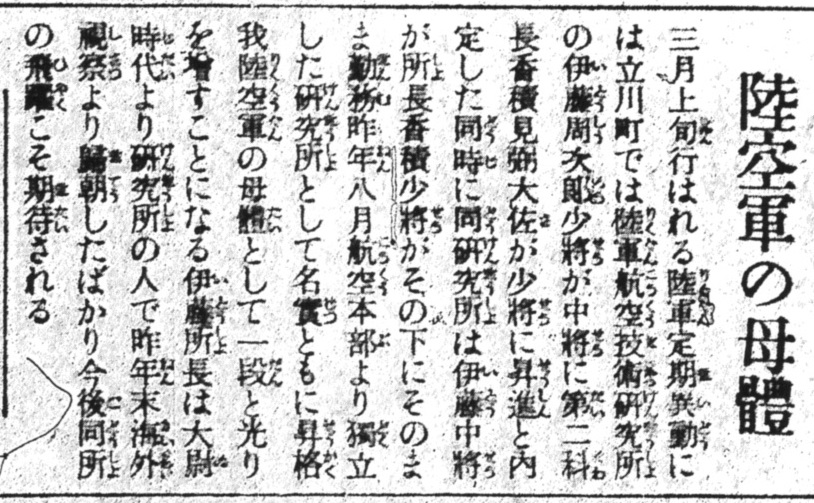 陸空軍の母體
三月上旬行はれる陸軍定期異動に
は立川町では陸軍航空技術研究所
の伊藤周次郎少將が中將に第二科
長香積見弼大佐が少將に昇進と內
定した同時に同研究所は伊藤中將
が所長香積少將がその下にそのま
ま勤務昨年八月航空本部より獨立
した研究所として名實ともに昇格
我陸空軍の母體として一段と光り
を增すことになる伊藤所長は大尉
時代より硏究所の人で昨年末海外
視察より歸朝したばかり今後同所
の飛躍こそ期待される